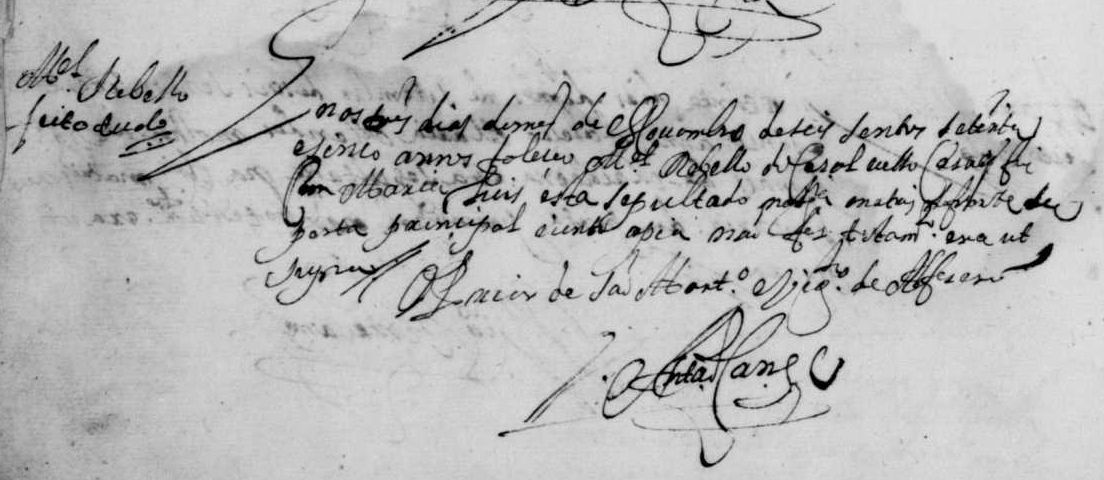 M.el Rebello
feito tudo
Enos três dias do mes de Novembro de seis sentos setenta
e sinco annos faleceo M.el Rebello do Casal cazado
Com Maria Luis está sepultado nesta matris defronte da
porta prinsipal junto a pia nao fes testam.to era ut
supra
O P.or de São Mart.o e Vig.ro de
Antão